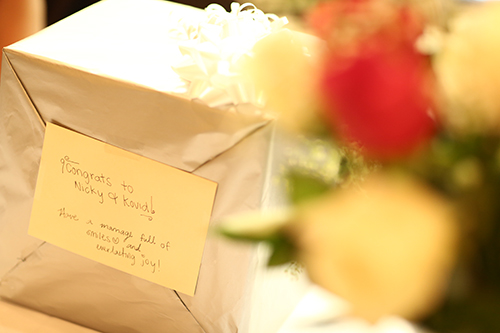 Congrats to
Nicky & Kavid!
Have a marriage full of
smiles and
everlasting joy!